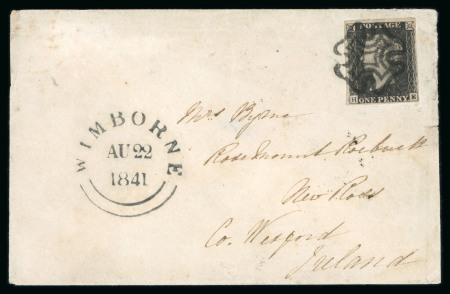 POSTAGE
H E
ONE PENNY
WIMBORNE
AU 22
1841
Mrs Byrne
Rosemount Roebuck
New Ross
Co. Wexford
Ireland